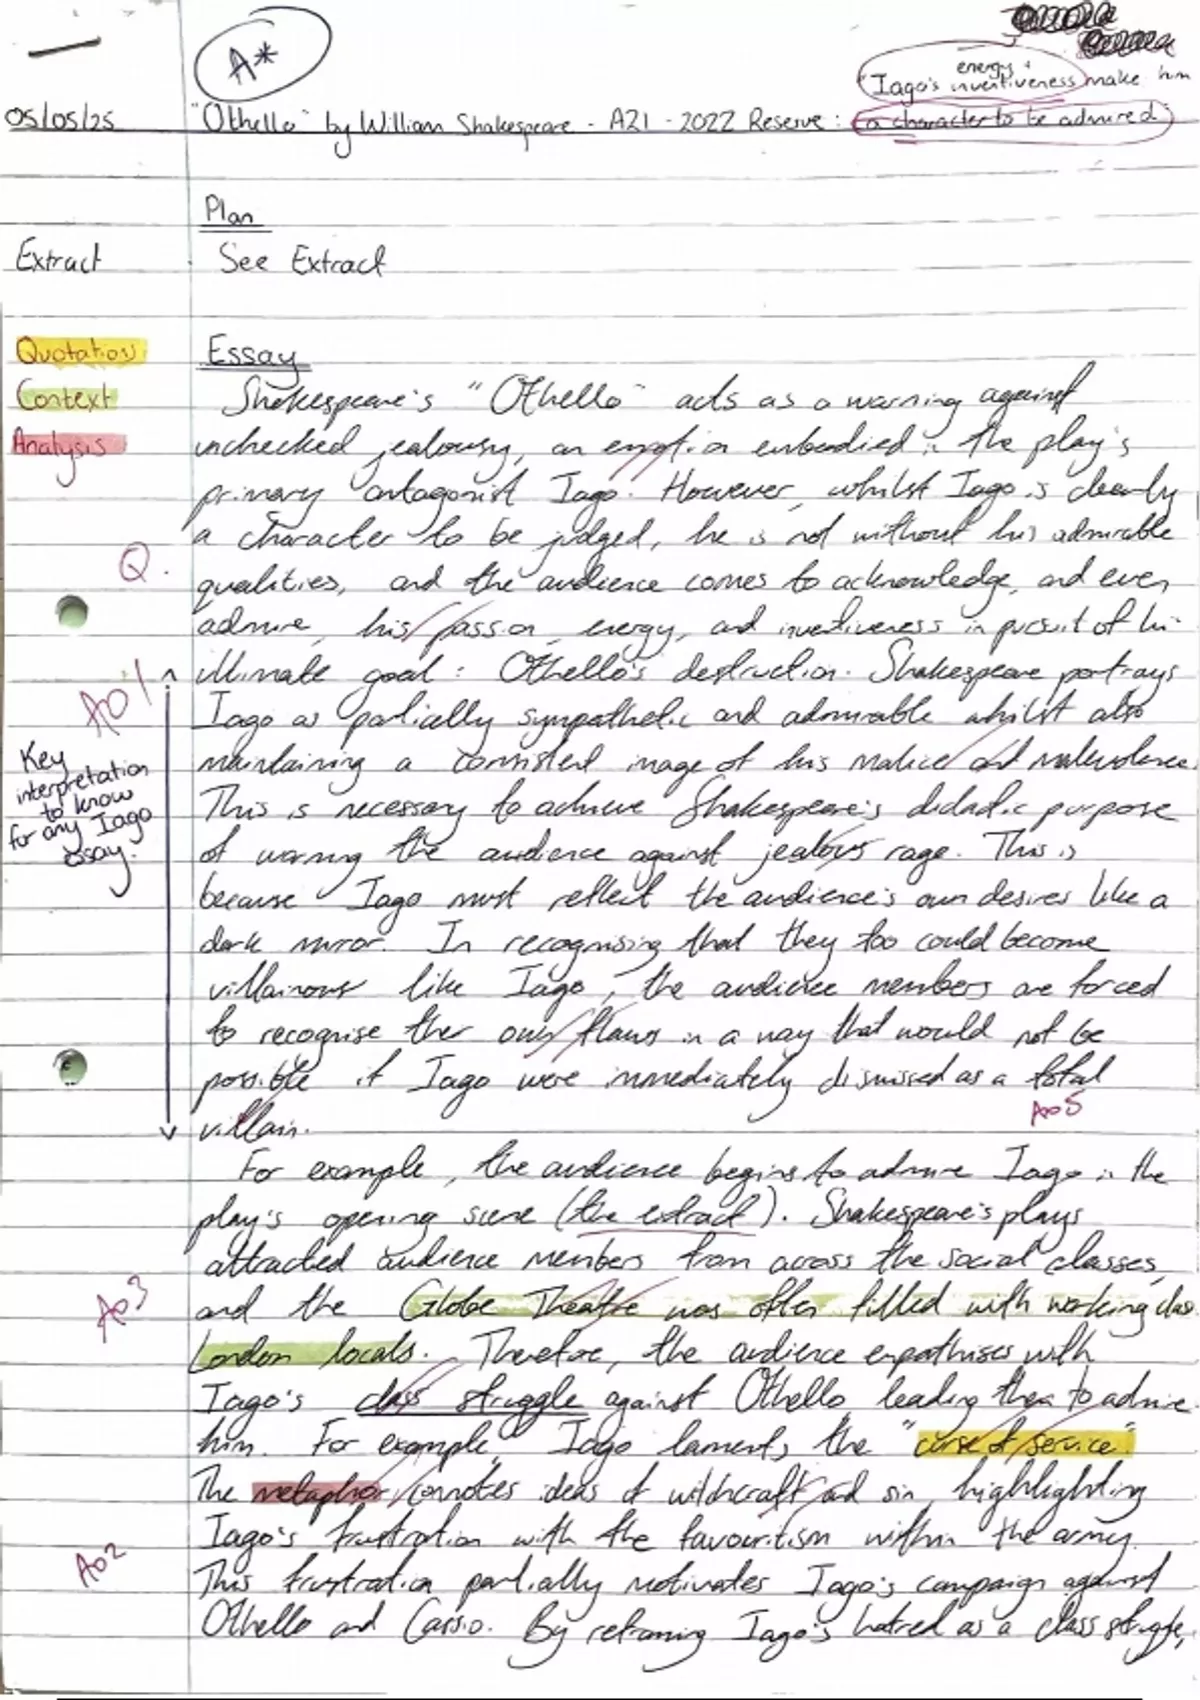 A*
energy +
"Iago's inventiveness make him
05/05/25 "Othello" by William Shakespeare - A21 - 2022 Reserve : (a character to be admired)
Plan
Extract See Extract
Quotation Essay
Context Shakespeare's "Othello" acts as a warning against
Analysis unchecked jealousy, an emotion embodied in the play's
primary antagonist Iago. However, whilst Iago is clearly
a character to be judged, he is not without his admirable
Q. qualities, and the audience comes to acknowledge, and even
admire, his passion, energy, and inventiveness in pursuit of his
AO1 ultimate goal : Othello's destruction. Shakespeare portrays
Iago as partially sympathetic and admirable whilst also
maintaining a consistent image of his malice and malevolence.
Key
interpretation
to know
for any Iago
essay.
This is necessary to achieve Shakespeare's didactic purpose
of warning the audience against jealous rage. This is
because Iago must reflect the audience's own desires like a
dark mirror. In recognising that they too could become
villainous like Iago, the audience members are forced
to recognise their own flaws in a way that would not be
possible if Iago were immediately dismissed as a total
AO5
villain.
For example, the audience begins to admire Iago in the
play's opening scene (the extract). Shakespeare's plays
attracted audience members from across the social classes,
AO3 and the Globe Theatre was often filled with working class
London locals. Therefore, the audience empathises with
Iago's class struggle against Othello, leading them to admire
him. For example, Iago laments the "curse of service"
The metaphor connotes ideas of witchcraft and sin, highlighting
Iago's frustration with the favouritism within the army.
AO2 This frustration partially motivates Iago's campaign against
Othello and Cassio. By reframing Iago's hatred as a class struggle,